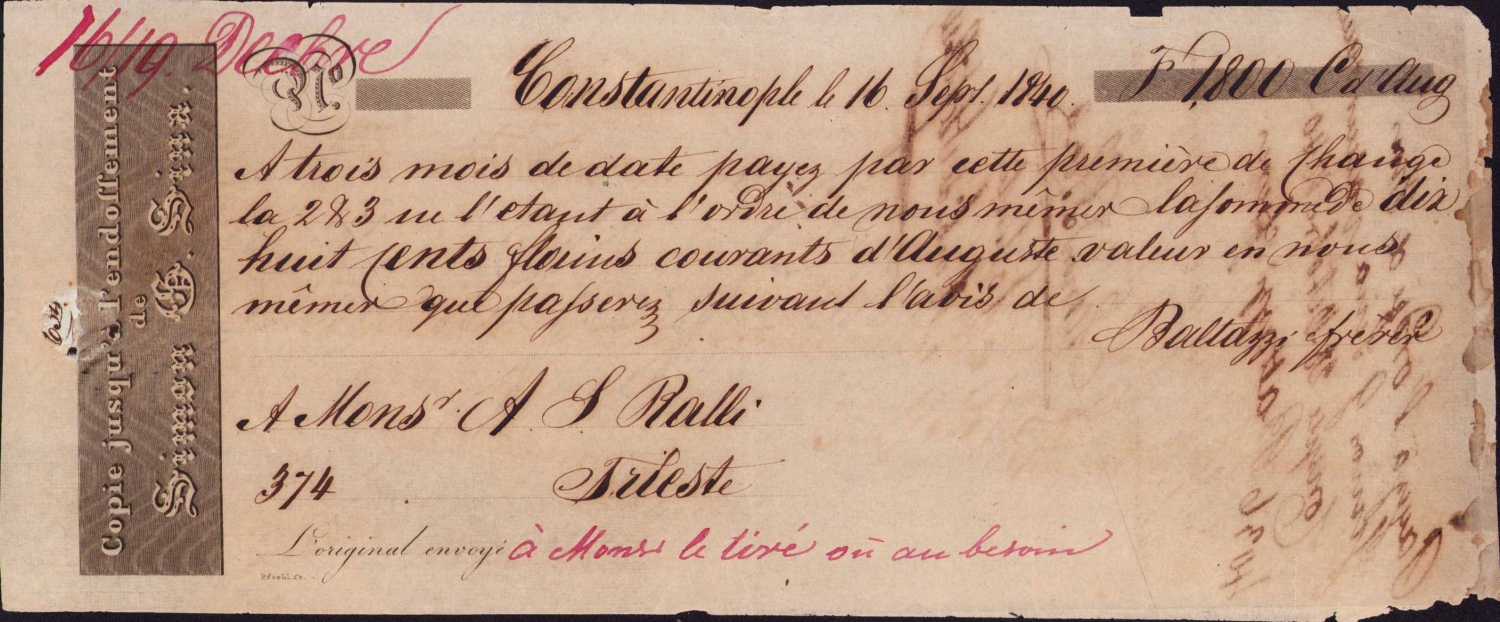 16/19. Decbre
No. Constantinople le 16 Sept. 1840. F 1,800 Ct d'Aug
A trois mois de date payez par cette première de Change
la 2 & 3 ne l'étant à l'ordre de nous mêmes la somme de dix
huit Cents florins courants d'Auguste valeur en nous
mêmes que passerez suivant l'avis de
Baltazzi frères
A Monsr. A S Ralli
374 Trieste
L'original envoyé à Monsr le tiré ou au besoin
Copie jusqu'à l'endossement
de
Simon G. Sina.